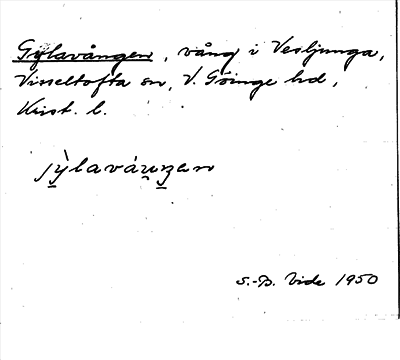 Gylavången, vång i Vesljunga,
Visseltofta sn, V. Göinge hd,
Krist. l.
jỳlaváuŋen
S.-B. Vide 1950